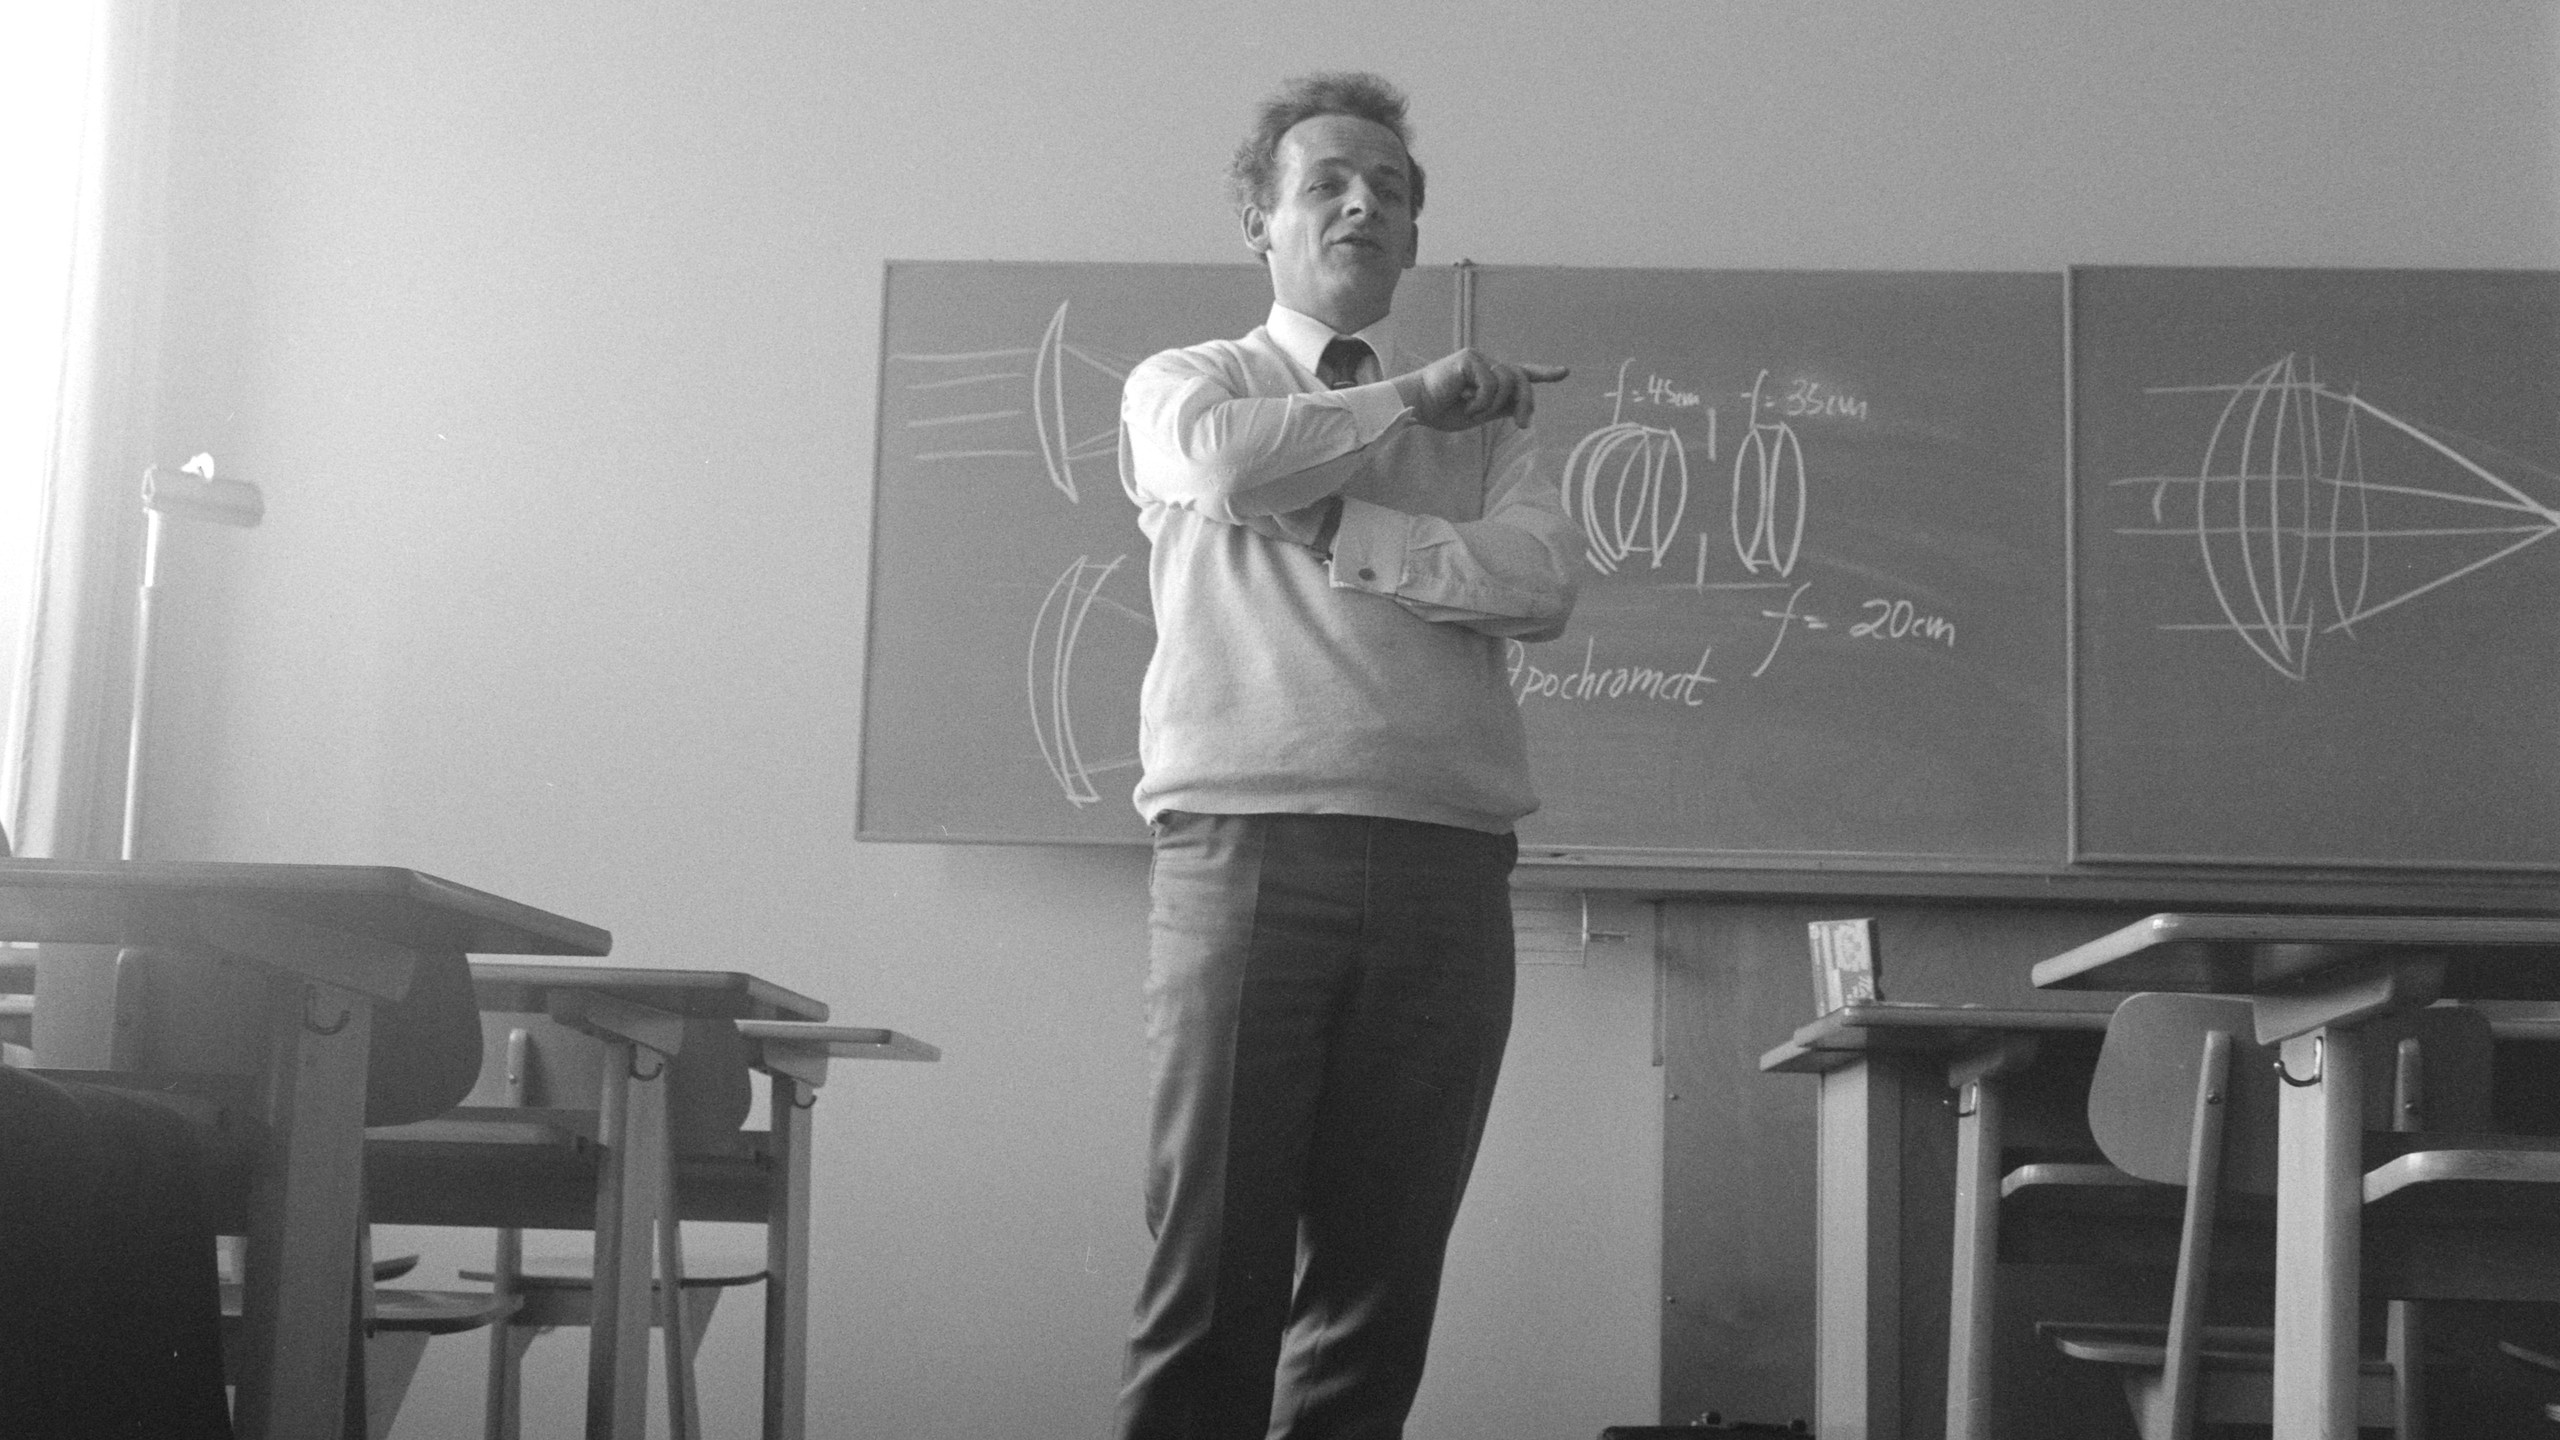 f=45cm f=35cm
f= 20cm
Apochromat